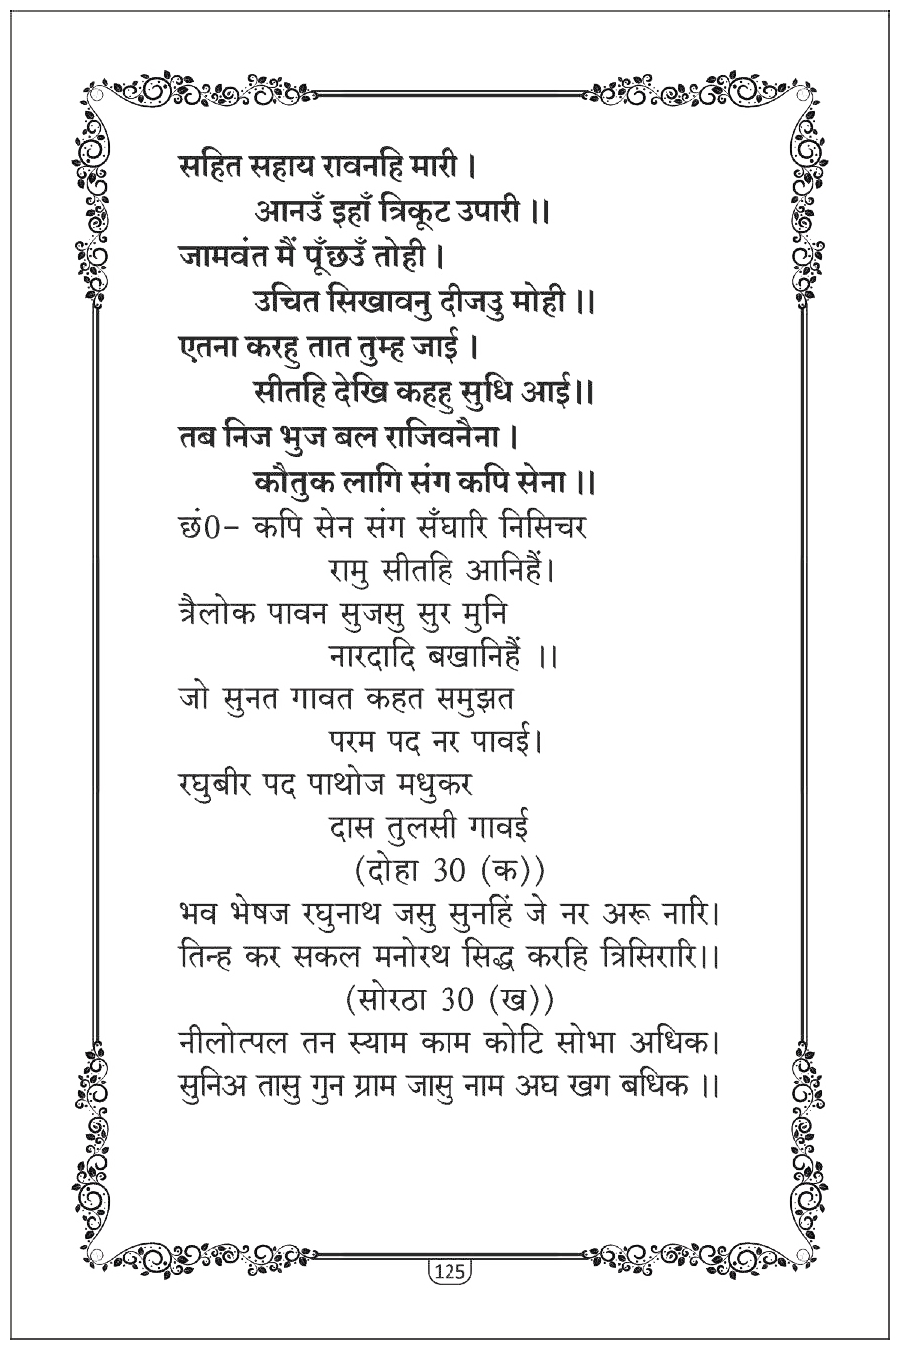 सहित सहाय रावनहि मारी ।
आनउँ इहाँ त्रिकूट उपारी ।।
जामवंत मैं पूँछउँ तोही ।
उचित सिखावनु दीजउु मोही ।।
एतना करहु तात तुम्ह जाई ।
सीतहि देखि कहहु सुधि आई।।
तब निज भुज बल राजिवनैना ।
कौतुक लागि संग कपि सेना ।।
छं0- कपि सेन संग सँघारि निसिचर
रामु सीतहि आनिहैं।
त्रैलोक पावन सुजसु सुर मुनि
नारदादि बखानिहैं ।।
जो सुनत गावत कहत समुझत
परम पद नर पावई।
रघुबीर पद पाथोज मधुकर
दास तुलसी गावई
(दोहा 30 (क))
भव भेषज रघुनाथ जसु सुनहिं जे नर अरू नारि।
तिन्ह कर सकल मनोरथ सिद्ध करहि त्रिसिरारि।।
(सोरठा 30 (ख))
नीलोत्पल तन स्याम काम कोटि सोभा अधिक।
सुनिअ तासु गुन ग्राम जासु नाम अघ खग बधिक ।।
125